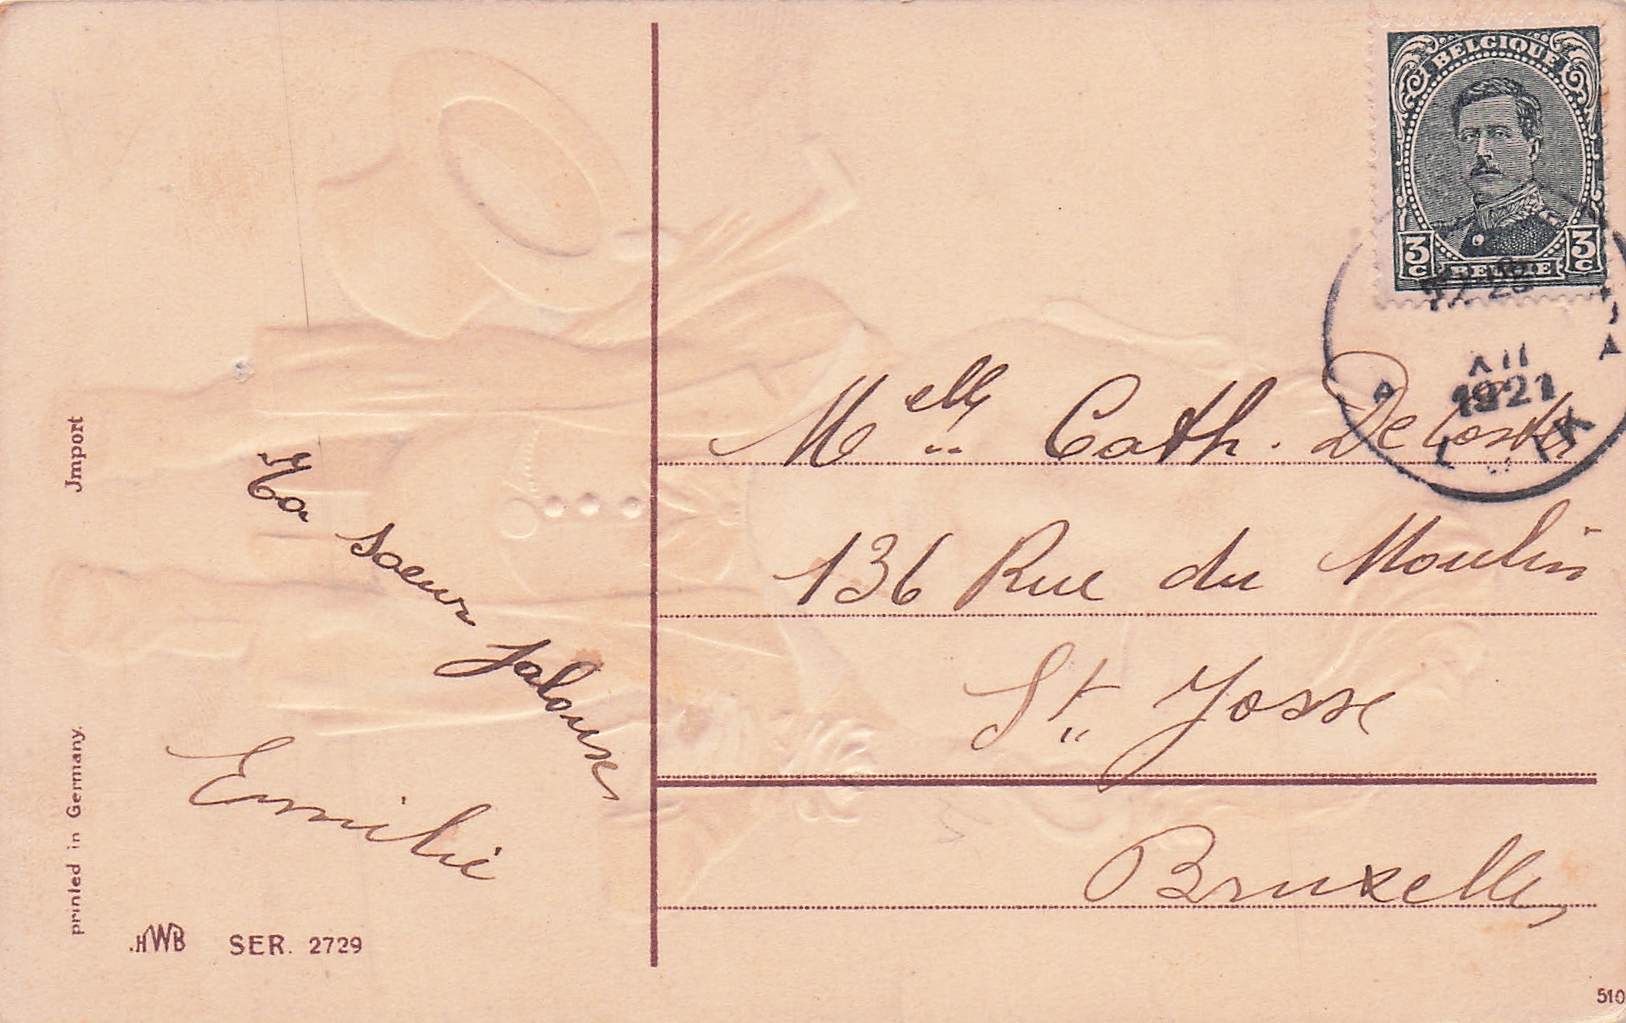 BELGIQUE
3 C 3 C
BELGIE
28
XII
1921
Melle Cath. De Coster
136 Rue du Moulin
St Josse
Bruxelles
Ta soeur jalouse
Emilie
Jmport
printed in Germany.
HWB SER. 2729
510